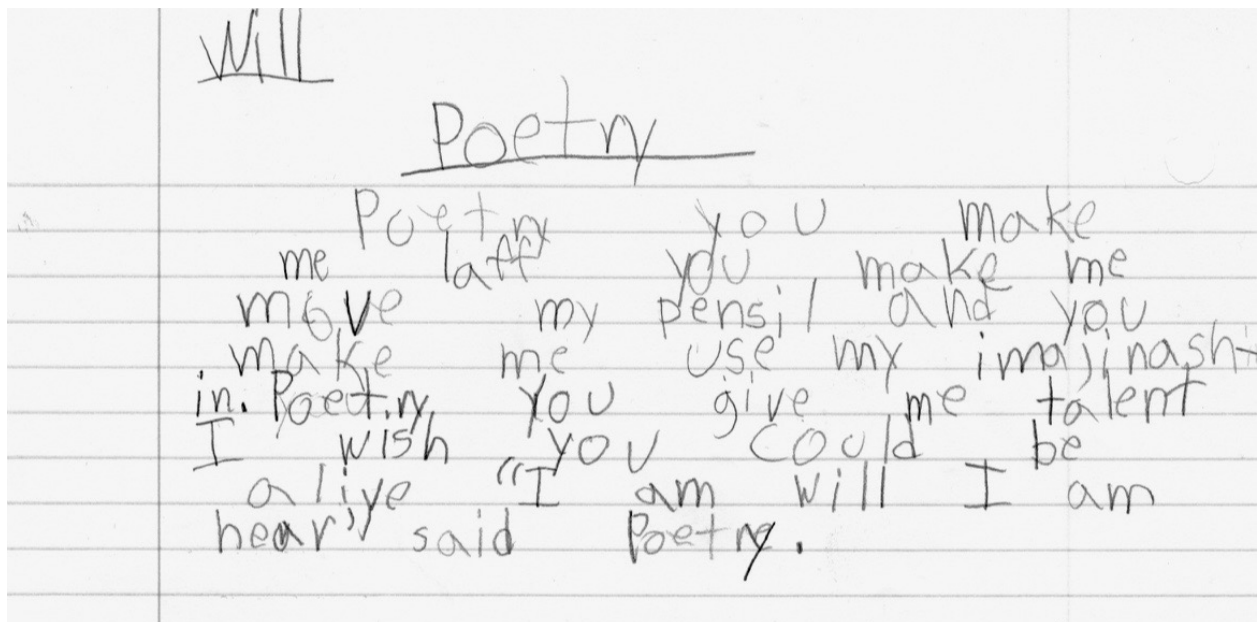 Will
Poetry
Poetry you make
me laff you make me
move my pensil and you
make me use my imajinash-
in. Poetry you give me talent
I wish you could be
alive "I am will I am
hear" said Poetry.